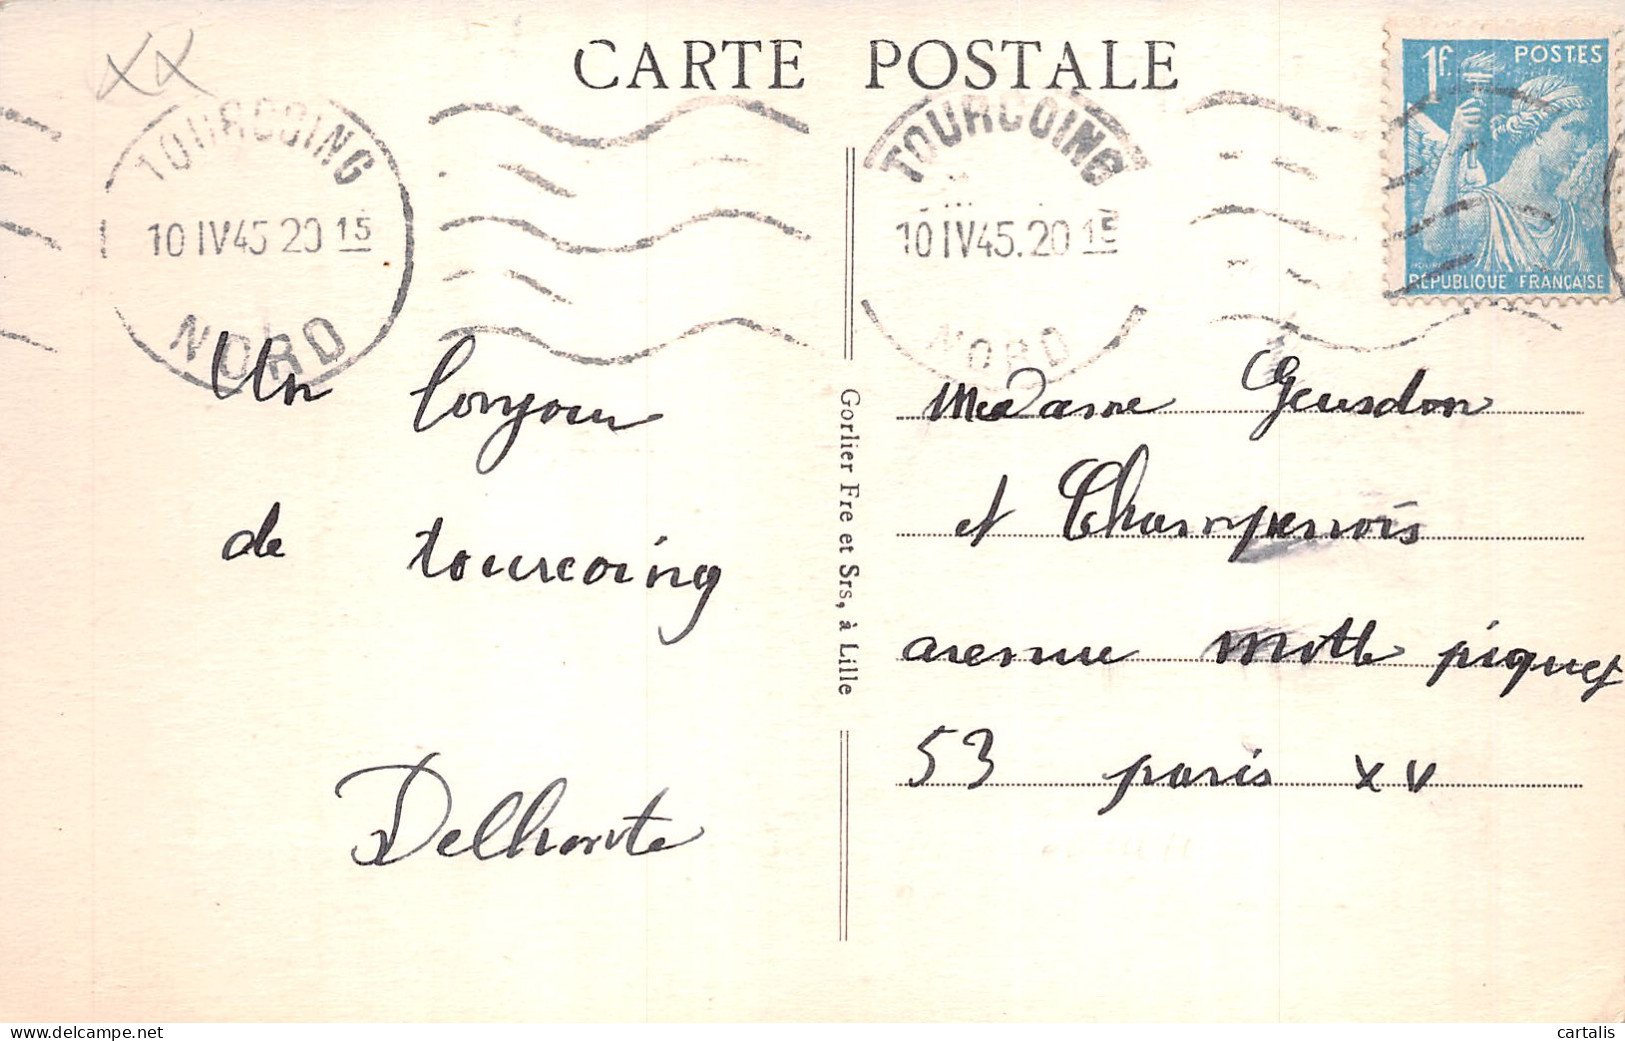 XX
CARTE POSTALE
TOURCOING
10 IV 45 20 15
NORD
TOURCOING
10 IV 45. 20 15
NORD
1f. POSTES
RÉPUBLIQUE FRANÇAISE
Un bonjour
de tourcoing
Delhoute
Gorlier Fre et Srs, à Lille
Madame Geusdon
et Champenois
avenue motte piquet
53 paris XV
delcampe.net
cartalis